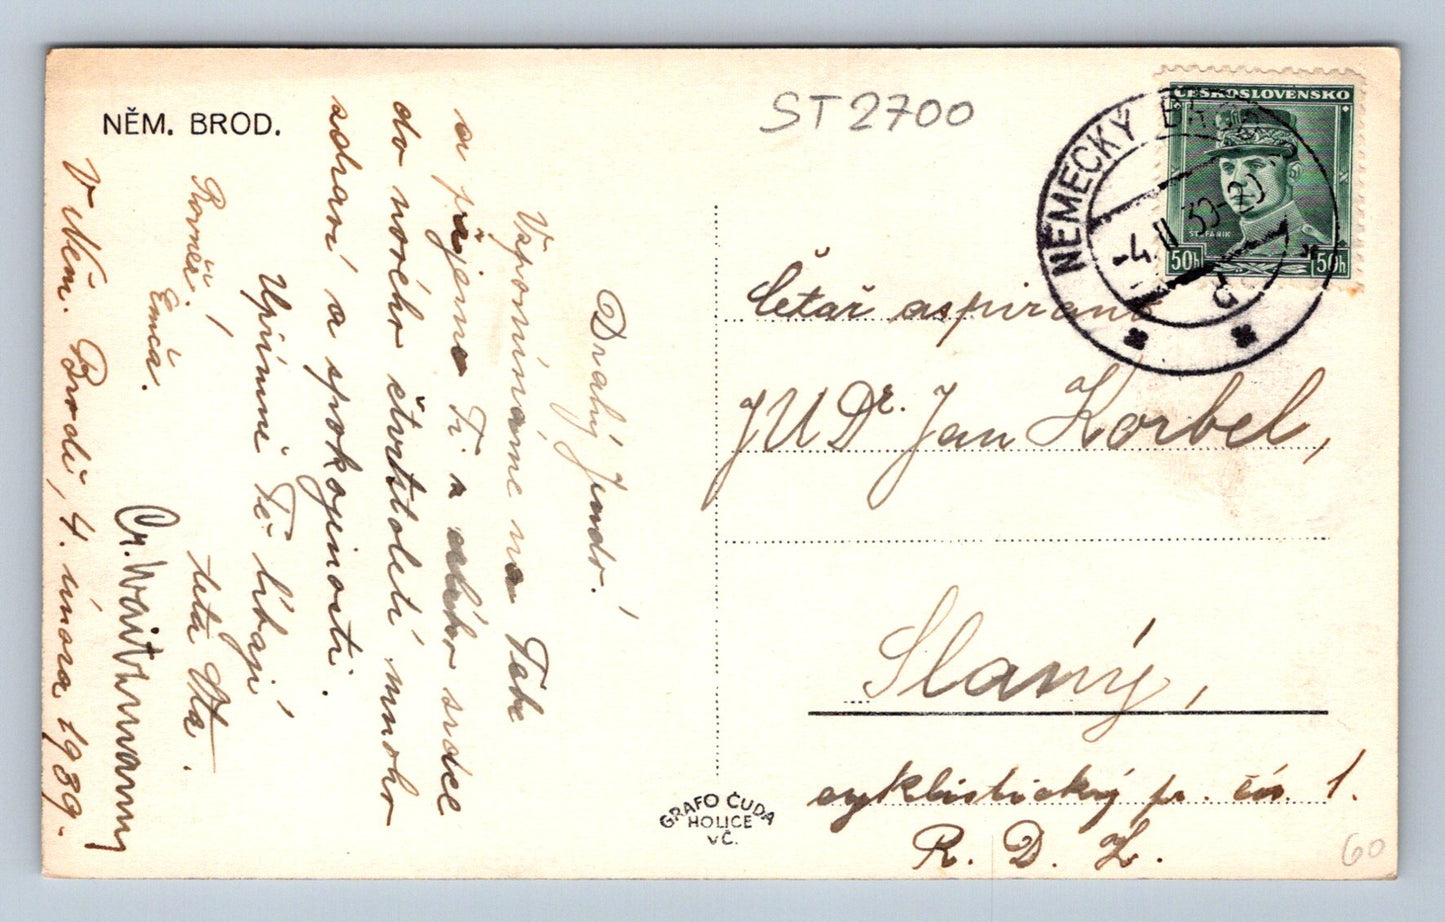 NĚM. BROD.
ST 2700
Drahý Jendo!
Vzpomínáme na Tebe
a přejeme Ti z celého srdce
do nového čtvrtstoletí mnoho
zdraví a spokojenosti.
Upřímně Tě líbají
teta
Enča.
V Něm. Brodě, 4. února 1939.
ČESKOSLOVENSKO
ŠTEFÁNIK
50h
50h
NĚMECKÝ BROD
-4.II.39-20
letař aspirant
JUDr. Jan Korbel,
Slaný,
cyklistický pr. čís. 1.
R. D. Ž.
GRAFO ČUDA
HOLICE
VČ.
60